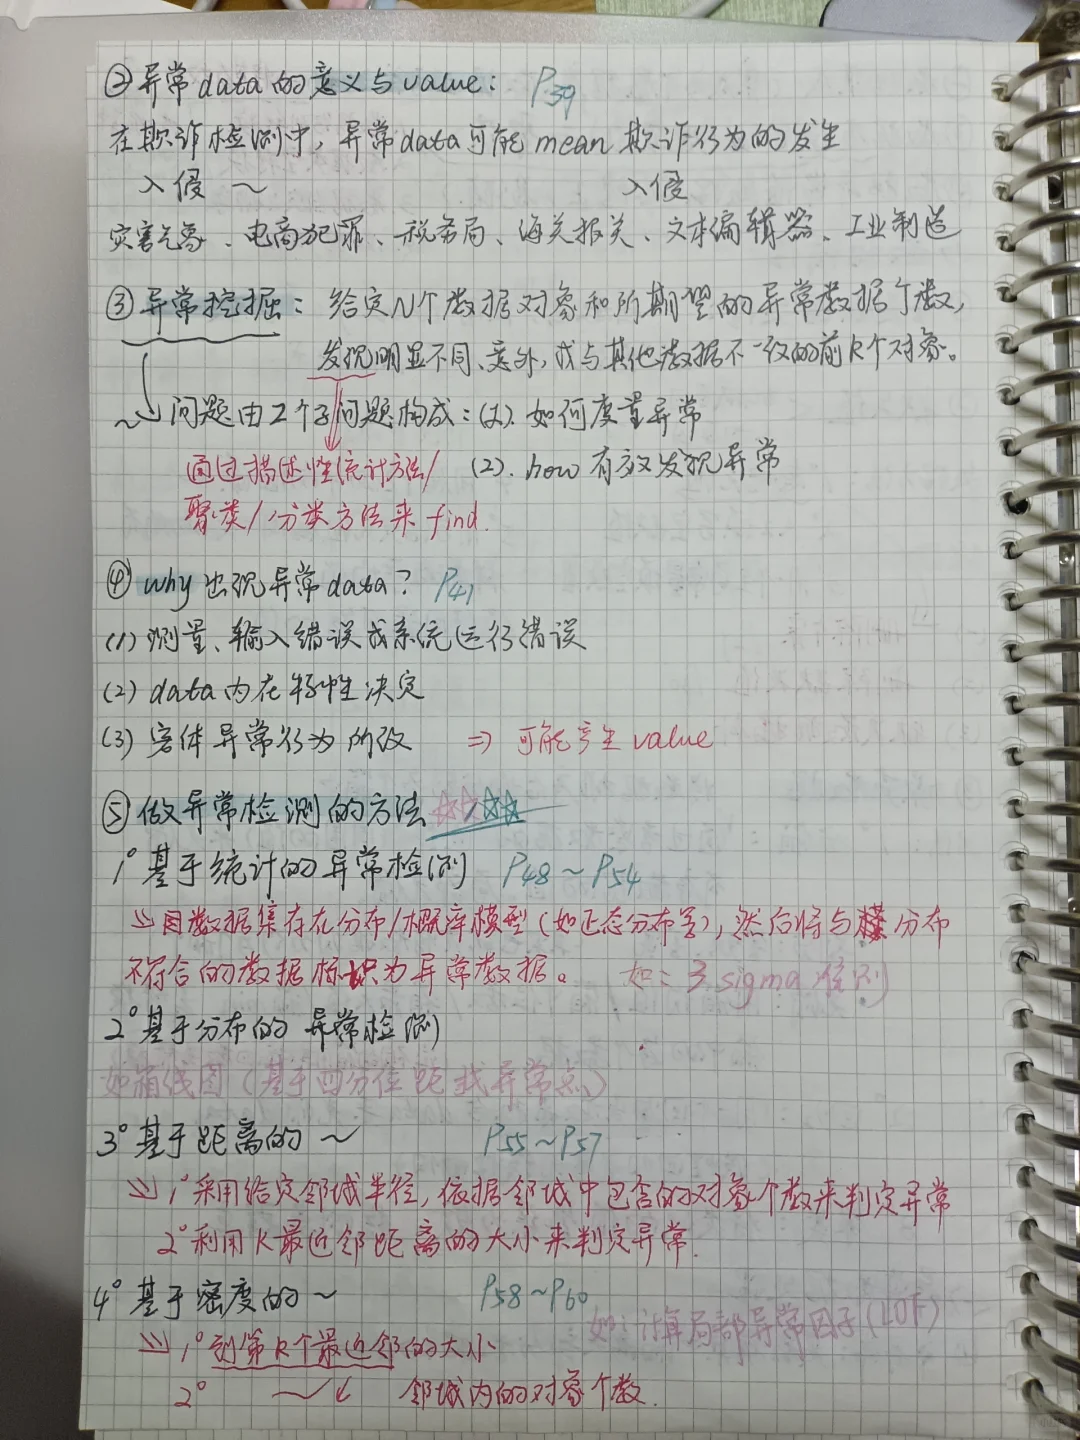 ② 异常data的意义与value： P39
在欺诈检测中，异常data可能mean欺诈行为的发生
入侵 ～ 入侵
灾害气象、电商犯罪、税务局、海关报关、文本编辑器、工业制造
③ 异常挖掘：给定N个数据对象和所期望的异常数据个数，
发现明显不同、意外，或与其他数据不一致的前k个对象。
～ 问题由2个子问题构成：(1). 如何度量异常
通过描述性统计方法/ (2). how有效发现异常
聚类/分类方法来find.
④ why出现异常data? P41
(1) 测量、输入错误或系统运行错误
(2) data内在特性决定
(3) 客体异常行为所致 ⇒ 可能产生value
⑤ 做异常检测的方法 ☆☆☆☆
1° 基于统计的异常检测 P48～P54
⇒ 因数据集存在分布/概率模型(如正态分布等)，然后将与分布
不符合的数据标识为异常数据。 如：3sigma准则
2° 基于分布的异常检测
如箱线图(基于四分位距找异常点)
3° 基于距离的～ P55～P57
⇒ 1° 采用给定邻域半径，依据邻域中包含的对象个数来判定异常
2° 利用K最近邻距离的大小来判定异常.
4° 基于密度的～ P58～P60
如：计算局部异常因子(LOF)
⇒ 1° 到第k个最近邻的大小
2° ～ 邻域内的对象个数.